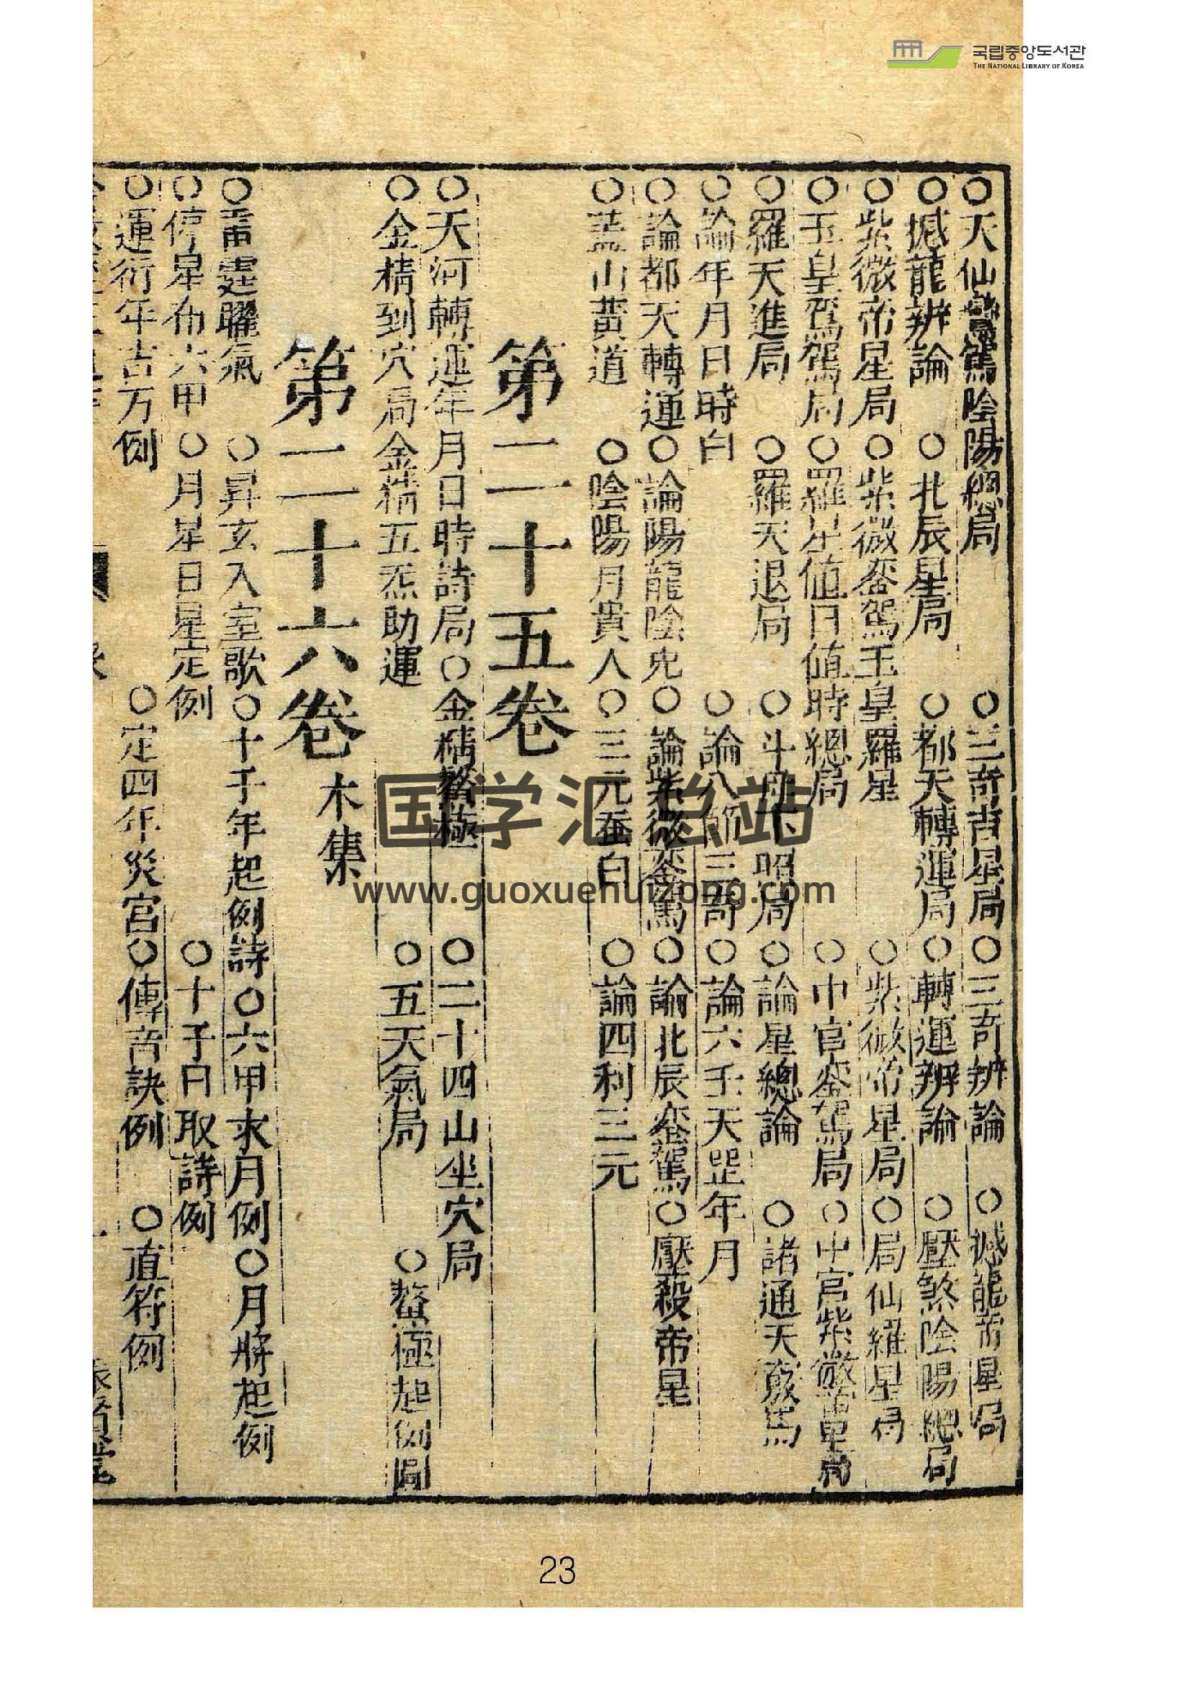 국립중앙도서관
THE NATIONAL LIBRARY OF KOREA
○天仙鑾駕陰陽總局○三奇吉星局○三奇辨論○撼龍帝星局
○撼龍辨論○北辰星局○都天轉運局○轉運辨論○壓煞陰陽總局
○紫微帝星局○紫微鑾駕玉皇羅星○紫微帝星局○局仙羅星局
○玉皇鑾駕局○羅星值日值時總局○中宮鑾駕局○中宮紫微帝星局
○羅天進局○羅天退局○斗母下照局○論星總論○諸通天竅馬
○論年月日時白○論八節三奇○論六壬天罡年月
○論都天轉運○論陽龍陰兎○論紫微鑾駕○論北辰鑾駕○壓殺帝星
○蓋山黃道○陰陽月貴人○三元紫白○論四利三元
第二十五卷
○天河轉運年月日時詩局○金精鰲極○二十四山坐穴局
○金精到穴局金精五炁助運○五天氣局○鰲極起例圖
第二十六卷 木集
○雷霆曜氣○昇玄入室歌○十干年起例詩○六甲求月例○月將起例
○停星布六甲○月星日星定例○十干日取詩例
○運行年吉方例○定四年災宮○傳音訣例○直符例
国学汇总站
www.guoxuehuizong.com
23